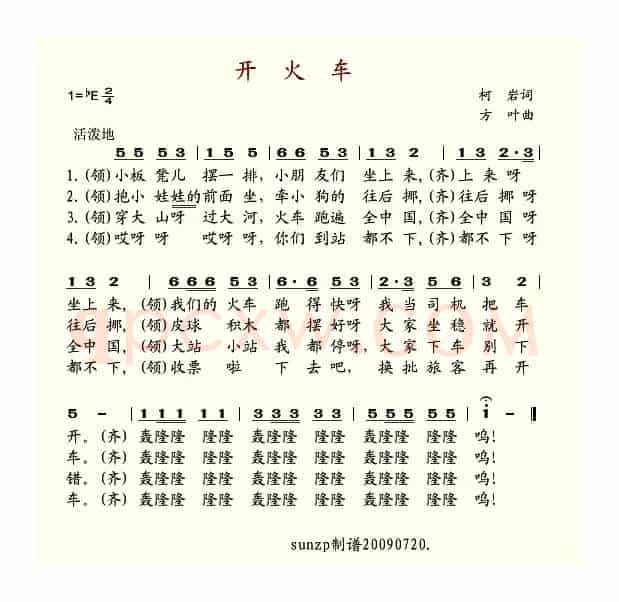 开 火 车
1=♭E 2/4
柯 岩词
方 叶曲
活泼地
5 5 5 3 | 1 5 5 | 6 6 5 3 | 1 3 2 | 1 3 2 | 2 · 3 |
1. (领)小板 凳儿 摆一排, 小朋 友们 坐上来, (齐)上来 呀
2. (领)抱小 娃娃的前面 坐, 牵小 狗的 往后 挪, (齐)往后 挪呀
3. (领)穿大 山呀 过大 河, 火车 跑遍 全中 国, (齐)全中 国 呀
4. (领)哎呀 呀 哎呀 呀, 你们 到站 都不 下, (齐)都不 下 呀
1 3 2 | 6 6 6 5 3 | 6 · 6 5 3 | 2 · 3 5 5 | 3 2 |
坐上来, (领)我们的 火车 跑 得快呀 我 当 司机 把 车
往后 挪, (领)皮球 积木 都 摆 好呀 大 家 坐稳 就 开
全中 国, (领)大站 小站 我 都 停呀, 大 家 下车 别 下
都不 下, (领)收票 啦 下 去 吧, 换 批 旅客 再 开
5 – | 1 1 1 1 1 | 3 3 3 3 3 | 5 5 5 5 5 | i – ‖
开。(齐)轰隆隆 隆隆 轰隆隆 隆隆 轰隆隆隆隆 呜!
车。(齐)轰隆隆 隆隆 轰隆隆 隆隆 轰隆隆隆隆 呜!
错。(齐)轰隆隆 隆隆 轰隆隆 隆隆 轰隆隆隆隆 呜!
车。(齐)轰隆隆 隆隆 轰隆隆 隆隆 轰隆隆隆隆 呜!
sunzp制谱20090720.